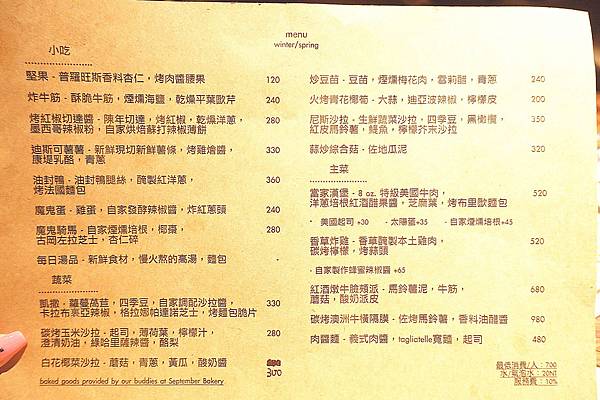 menu
winter/spring
小吃
堅果 - 普羅旺斯香料杏仁，烤肉醬腰果 120
炸牛筋 - 酥脆牛筋，煙燻海鹽，乾燥平葉歐芹 240
烤紅椒切達醬 - 陳年切達，烤紅椒，乾燥洋蔥， 280
墨西哥辣椒粉，自家烘焙蘇打辣椒薄餅
迪斯可薯薯 - 新鮮現切新鮮薯條，烤雞燴醬， 330
康堤乳酪，青蔥
油封鴨 - 油封鴨腿絲，醃製紅洋蔥， 360
烤法國麵包
魔鬼蛋 - 雞蛋，自家發酵辣椒醬，炸紅蔥頭 240
魔鬼騎馬 - 自家煙燻培根，椰棗， 280
古岡左拉芝士，杏仁碎
每日湯品 - 新鮮食材，慢火熬的高湯，麵包
蔬菜
凱撒 - 蘿蔓萵苣，四季豆，自家調配沙拉醬， 330
卡拉布裏亞辣椒，格拉娜帕達諾芝士，烤麵包脆片
碳烤玉米沙拉 - 起司，薄荷葉，檸檬汁， 280
澄清奶油，綠哈里薩辣醬，酪梨
白花椰菜沙拉 - 蘑菇，青蔥，黃瓜，酸奶醬
300
baked goods provided by our buddies at September Bakery
炒豆苗 - 豆苗，煙燻梅花肉，雪莉醋，青蔥 240
火烤青花椰荀 - 大蒜，迪亞波辣椒，檸檬皮 200
尼斯沙拉 - 生鮮蔬菜沙拉，四季豆，黑橄欖， 350
紅皮馬鈴薯，鯷魚，檸檬芥末沙拉
蒜炒綜合菇 - 佐地瓜泥 320
主菜
當家漢堡 - 8 oz. 特級美國牛肉， 520
洋蔥培根紅酒醋果醬，芝麻葉，烤布里歐麵包
· 美國起司 +30 - 太陽蛋+35 - 自家煙燻培根+45
香草炸雞 - 香草醃製本土雞肉， 520
碳烤檸檬，烤蒜頭
- 自家製作蜂蜜辣椒醬 +65
紅酒燉牛臉頰派 - 馬鈴薯泥，牛筋， 680
蘑菇，酸奶派皮
碳烤澳洲牛橫隔膜 - 佐烤馬鈴薯，香料油醋醬 980
肉醬麵 - 義式肉醬，tagliatelle寬麵，起司 480
最低消費/人：700
水/氣泡水：20NT
服務費：10%